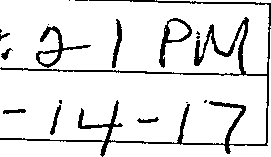 :21 PM
-14-17